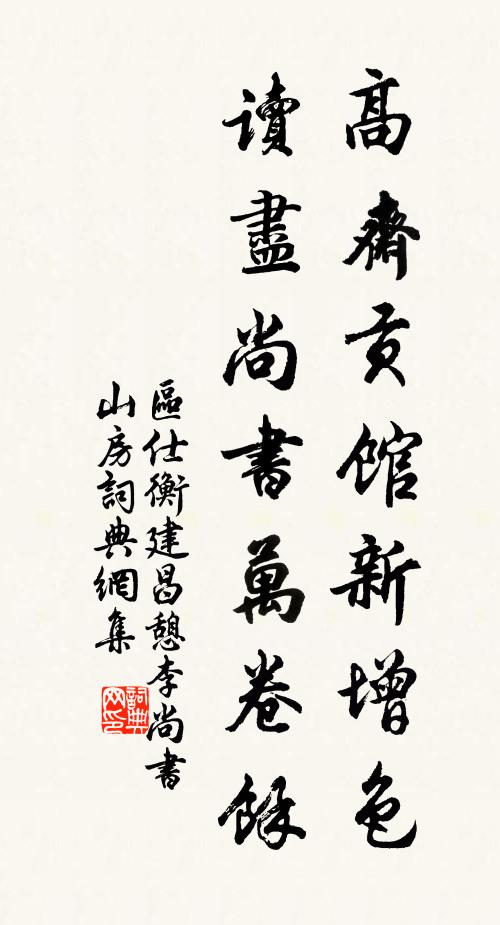 高齋貢館新增色
讀盡尚書萬卷餘
區仕衡建昌憩李尚書
山房詞典網集
詞典
网印